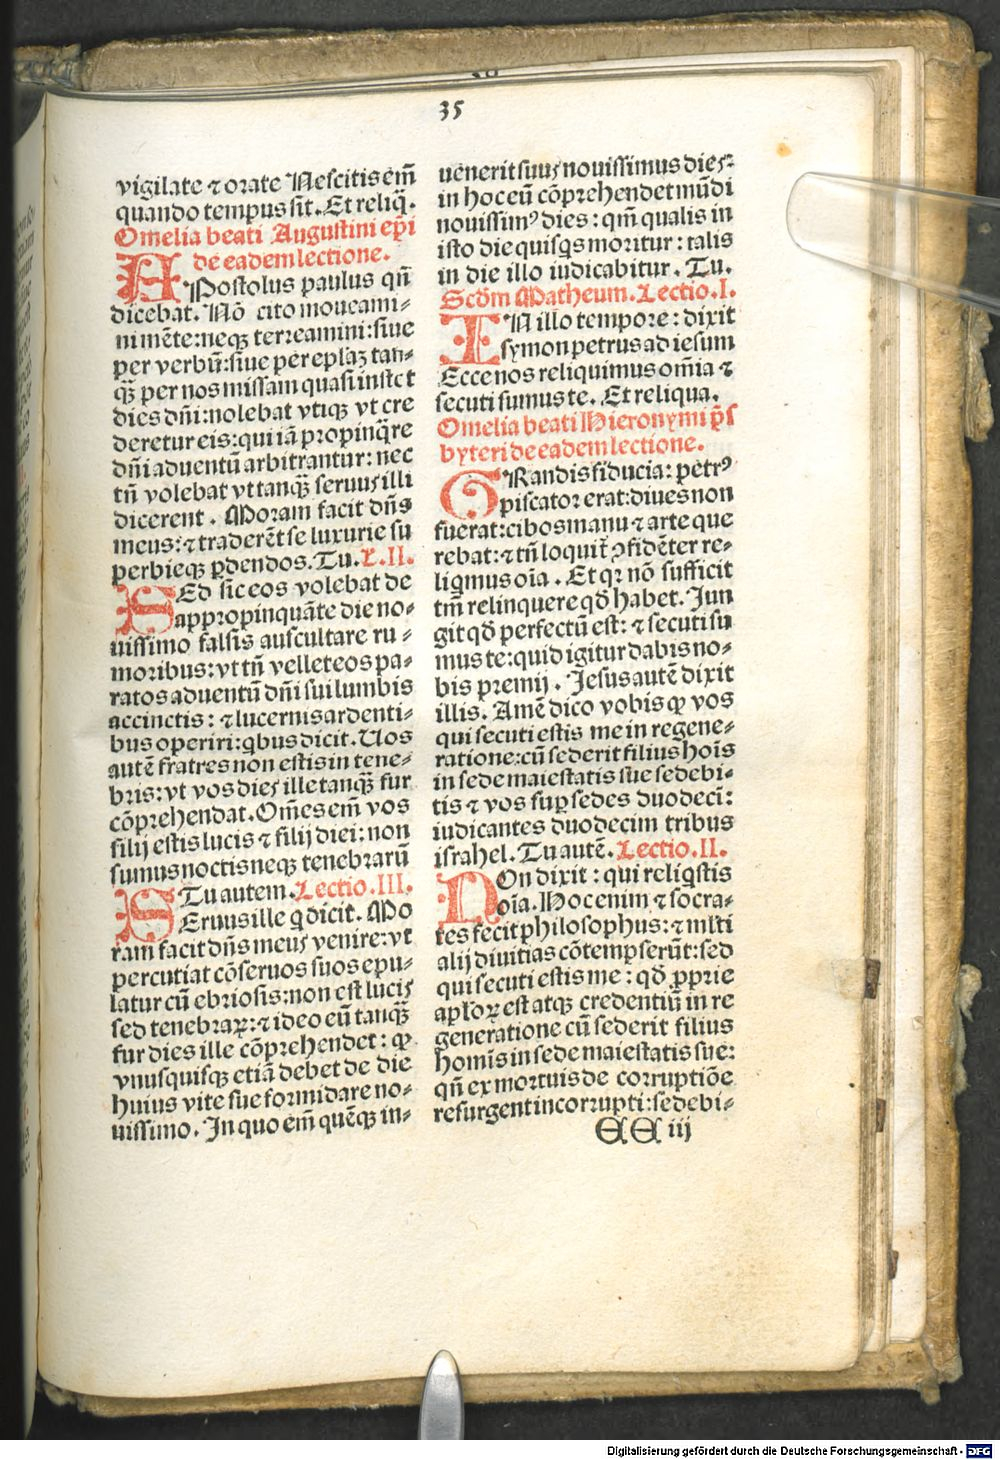 35
vigilate ⁊ orate Nescitis em̄
quando tempus sit. Et reliq̄.
Omelia beati Augustini ep̄i
de eadem lectione.
APostolus paulus qn̄
dicebat. Nō cito moueami⸗
ni mēte: neqꝫ terreamini: siue
per verbū: siue per eplaꝫ tan⸗
qꝫ̄ per nos missam quasi instet
dies dn̄i: nolebat vtiqꝫ vt cre
deretur eis: qui iā propinq̄re
dn̄i aduentū arbitrantur: nec
tn̄ volebat vt tanqꝫ̄ seruus illi
dicerent. Moram facit dn̄s
meus: ⁊ traderēt se luxurie su
perbieqꝫ ꝑdendos. Tu. L. II.
SEd sic eos volebat de
appropinquāte die no⸗
uissimo falsis auscultare ru⸗
moribus: vt tn̄ vellet eos pa⸗
ratos aduentū dn̄i sui lumbis
accinctis: ⁊ lucernis ardenti⸗
bus operiri: qbus dicit. Uos
autē fratres non estis in tene⸗
bris: vt vos dies ille tanqꝫ̄ fur
cōprehendat. Om̄es em̄ vos
filij estis lucis ⁊ filij diei: non
sumus noctis neqꝫ tenebrarū
Tu autem. Lectio. III.
SEruus ille q dicit. Mo
ram facit dn̄s meus venire: vt
percutiat cōseruos suos epu⸗
latur cū ebriosis: non est lucis
sed tenebraꝝ: ⁊ ideo eū tanqꝫ̄
fur dies ille cōprehendet: ꝙ
vnusquisqꝫ etiā debet de die
huius vite sue formidare no⸗
uissimo. In quo em̄ quēqꝫ in⸗
uenerit suus nouissimus dies:
in hoc eū cōprehendet mūdi
nouissimꝰ dies: qm̄ qualis in
isto die quisqs moritur: talis
in die illo iudicabitur. Tu.
Scdm̄ Matheum. Lectio. I.
IN illo tempore: dixit
symon petrus ad iesum
Ecce nos reliquimus om̄ia ⁊
secuti sumus te. Et reliqua.
Omelia beati Hieronymi p̄s
byteri de eadem lectione.
GRandis fiducia: petrꝰ
piscator erat: diues non
fuerat: cibos manu ⁊ arte que
rebat: ⁊ tn̄ loquit̄ ꝯfidēter re⸗
liqmus oīa. Et qꝛ nō sufficit
tm̄ relinquere qd̄ habet. Jun
git qd̄ perfectū est: ⁊ secuti su
mus te: quid igitur dabis no⸗
bis premij. Jesus autē dixit
illis. Amē dico vobis ꝙ vos
qui secuti estis me in regene⸗
ratione: cū sederit filius hoīs
in sede maiestatis sue sedebi⸗
tis ⁊ vos suꝑ sedes duodecī:
iudicantes duodecim tribus
israhel. Tu autē. Lectio. II.
NOn dixit: qui reliqstis
oīa. Hoc enim ⁊ socra⸗
tes fecit philosophus: ⁊ ml̄ti
alij diuitias cōtempserūt: sed
qui secuti estis me: qd̄ ꝓprie
apl̄oꝝ est atqꝫ credentiū in re
generatione cū sederit filius
homīs in sede maiestatis sue:
qn̄ ex mortuis de corruptiōe
resurgent incorrupti: sedebi⸗
EE iij
Digitalisierung gefördert durch die Deutsche Forschungsgemeinschaft - DFG